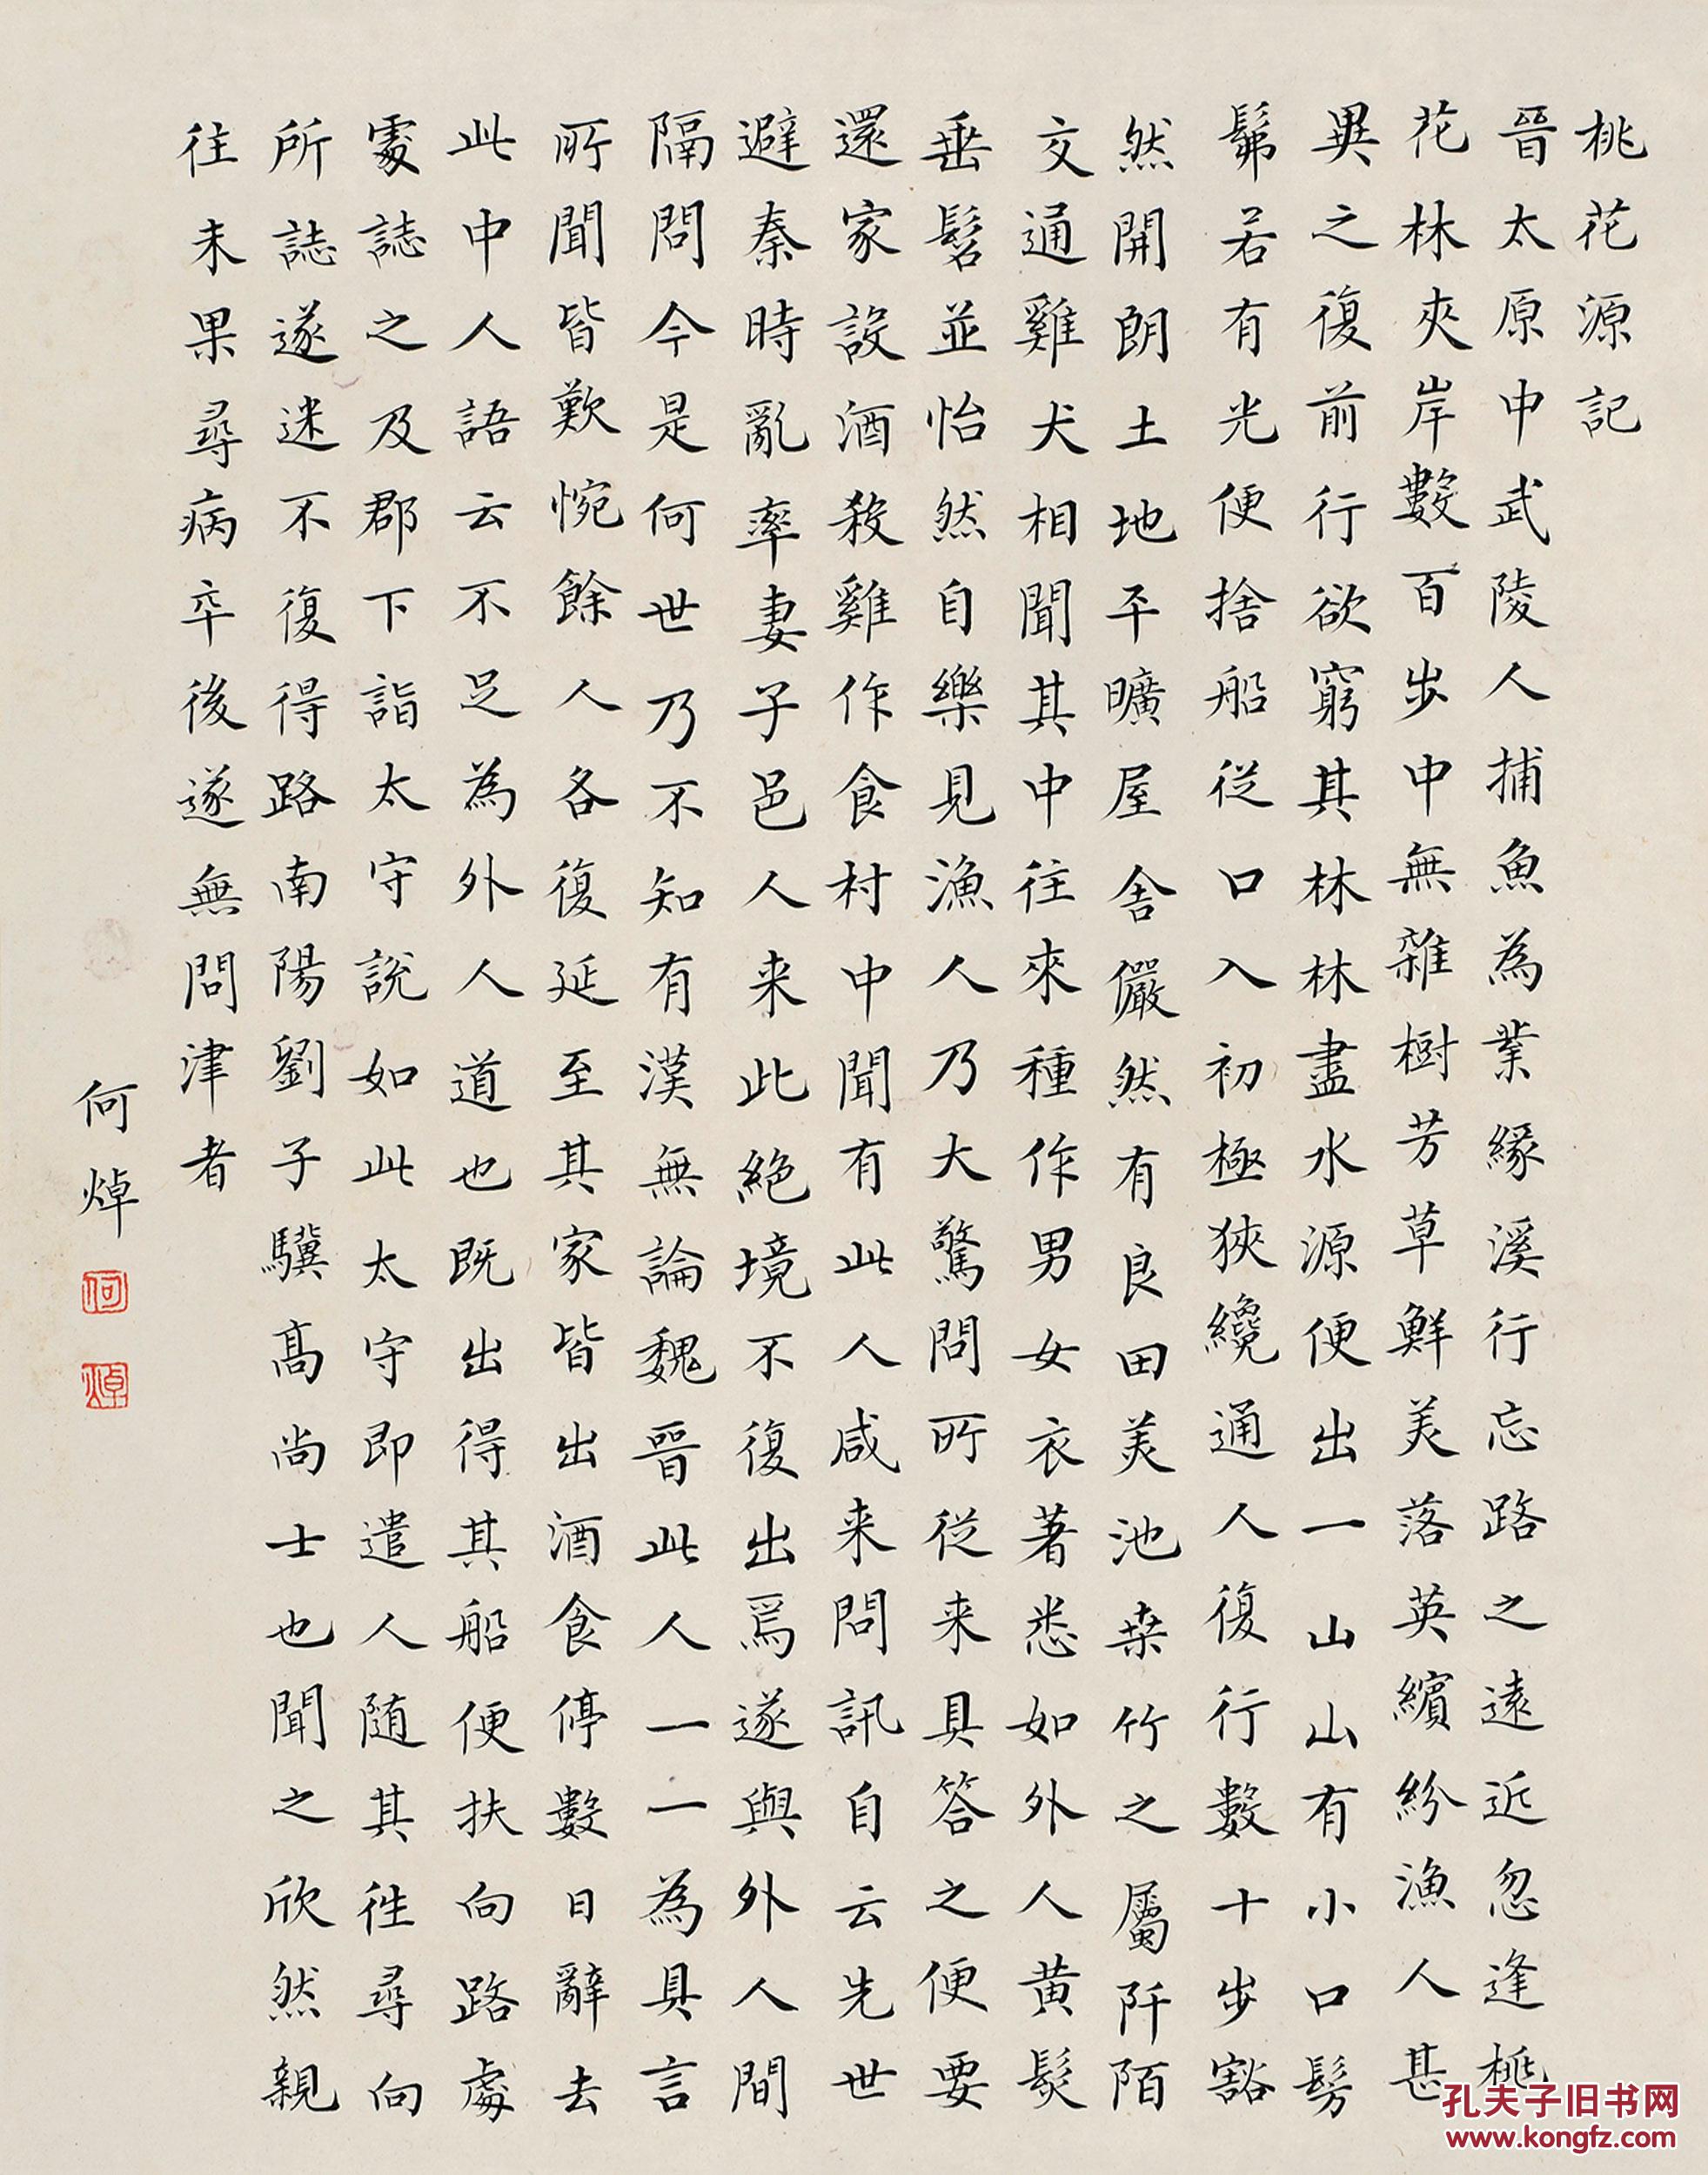 桃花源記
晉太原中武陵人捕魚為業緣溪行忘路之遠近忽逢桃
花林夾岸數百步中無雜樹芳草鮮美落英繽紛漁人甚
異之復前行欲窮其林林盡水源便出一山山有小口髣
髴若有光便捨船從口入初極狹纔通人復行數十步豁
然開朗土地平曠屋舍儼然有良田美池桒竹之屬阡陌
交通雞犬相聞其中往來種作男女衣著悉如外人黄髮
垂髫並怡然自樂見漁人乃大驚問所從来具答之便要
還家設酒殺雞作食村中聞有此人咸来問訊自云先世
避秦時亂率妻子邑人来此絕境不復出焉遂與外人間
隔問今是何世乃不知有漢無論魏晉此人一一為具言
所聞皆歎惋餘人各復延至其家皆出酒食停數日辭去
此中人語云不足為外人道也既出得其船便扶向路處
處誌之及郡下詣太守說如此太守即遣人随其往尋向
所誌遂迷不復得路南陽劉子驥髙尚士也聞之欣然親
往未果尋病卒後遂無問津者
何焯
何
焯
孔夫子旧书网
www.kongfz.com